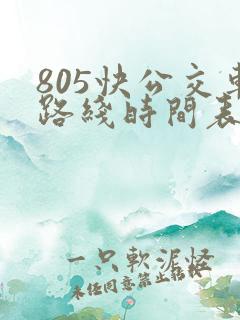 805快公交車
路綫時間表
一只軟泥怪
未经同意禁止转载